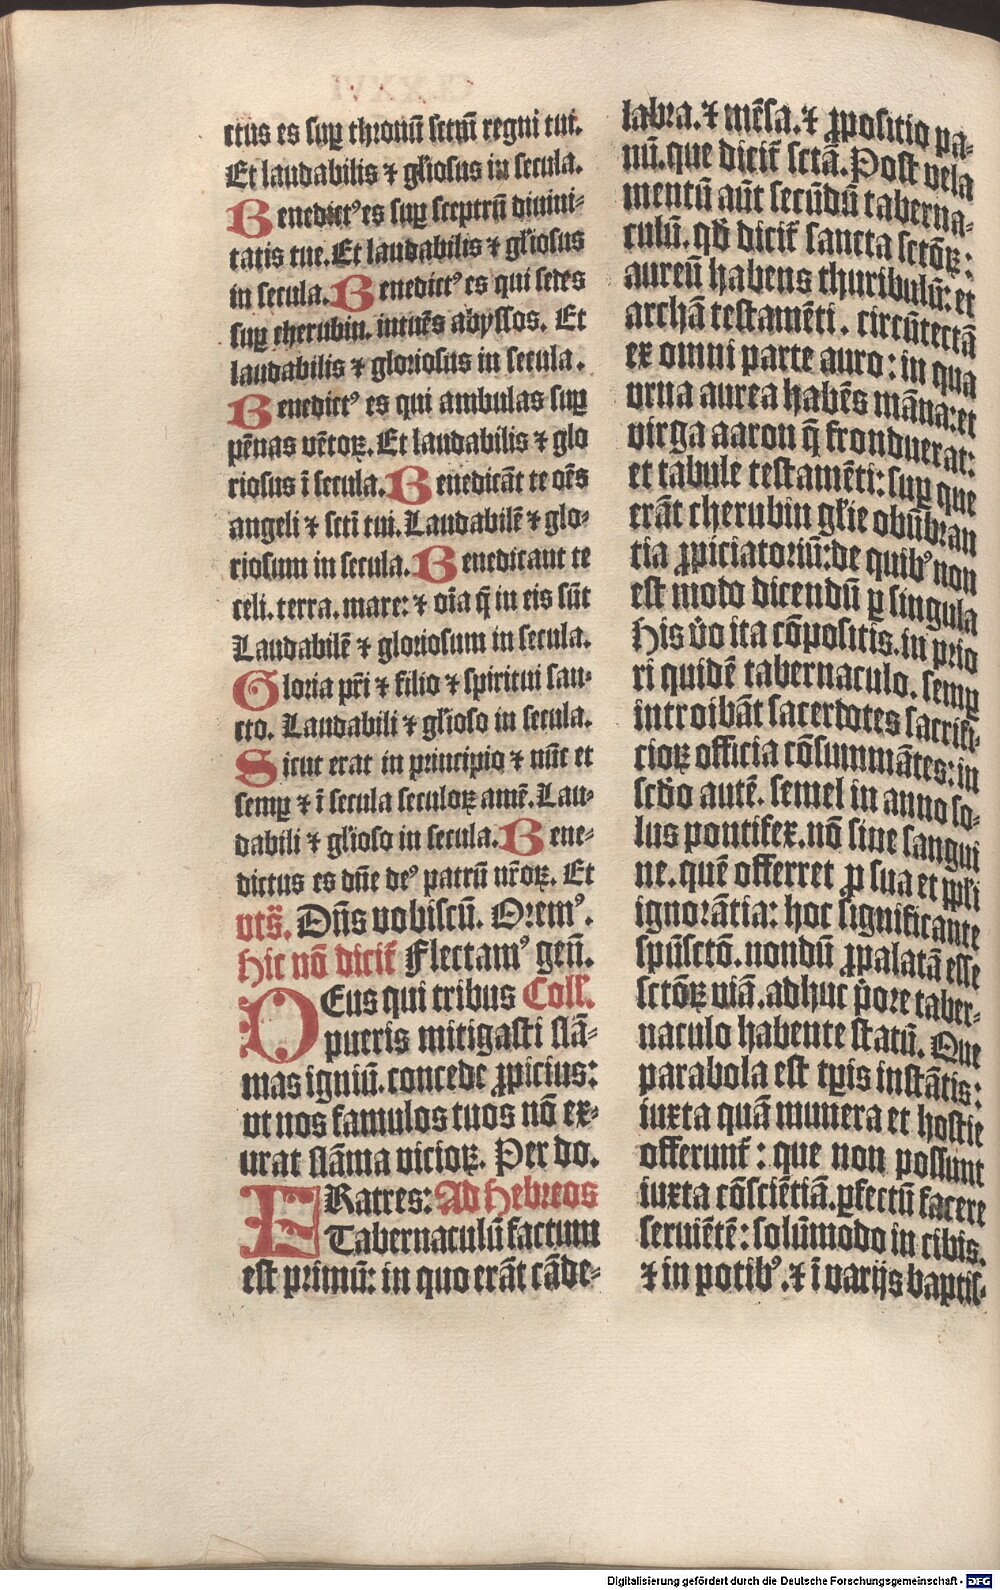 ctus es suꝑ thronū sctm̄ regni tui.
Et laudabilis ⁊ gl̄iosus in secula.
Benedictꝰ es suꝑ sceptrū diuini-
tatis tue. Et laudabilis ⁊ gl̄iosus
in secula. Benedictꝰ es qui sedes
suꝑ cherubin. intuēs abyssos. Et
laudabilis ⁊ gloriosus in secula.
Benedictꝰ es qui ambulas suꝑ
pēnas vētoꝝ. Et laudabilis ⁊ glo
riosus ī secula. Benedicāt te oēs
angeli ⁊ scti tui. Laudabilē ⁊ glo-
riosum in secula. Benedicant te
celi. terra. mare: ⁊ oīa q̄ in eis sūt
Laudabilē ⁊ gloriosum in secula.
Gloria pr̄i ⁊ filio ⁊ spiritui san-
cto. Laudabili ⁊ gl̄ioso in secula.
Sicut erat in principio ⁊ nūc et
semꝑ ⁊ ī secula seculoꝝ amē. Lau-
dabili ⁊ gl̄ioso in secula. Bene-
dictus es dn̄e deꝰ patrū nr̄oꝝ. Et
vts̄. Dn̄s vobiscū. Oremꝰ.
Hic nō dicit̄ Flectamꝰ genū.
DEus qui tribus Coll̄.
pueris mitigasti flā-
mas igniū. concede ꝓpicius:
vt nos famulos tuos nō ex-
urat flāma vicioꝝ. Per do.
FRatres: Ad Hebreos
Tabernaculū factum
est primū: in quo erāt cāde-
labra. ⁊ mēsa. ⁊ ꝓpositio pa-
nū. que dicit̄ sctā. Post vela
mentū aūt secūdū taberna-
culū. qd̄ dicit̄ sancta sctōꝝ:
aureū habens thuribulū: et
archā testamēti. circūtectā
ex omni parte auro: in qua
vrna aurea habēs māna: et
virga aaron q̄ fronduerat:
et tabule testamēti: suꝑ que
erāt cherubin gl̄ie obūbran
tia ꝓpiciatoriū: de quibꝰ non
est modo dicendū ꝑ singula
His v̄o ita cōpositis. in prio
ri quidē tabernaculo. semꝑ
introibāt sacerdotes sacrifi-
cioꝝ officia cōsummātes: in
scd̄o autē. semel in anno so-
lus pontifex. nō sine sangui
ne. quē offerret ꝓ sua et ppl̄i
ignorātia: hoc significante
spūsctō. nondū ꝓpalatā esse
sctōꝝ viā. adhuc p̄ore taber-
naculo habente statū. Que
parabola est tꝑis instātis:
iuxta quā munera et hostie
offerunt̄: que non possunt
iuxta cōsciētiā. ꝑfectū facere
seruiētē: solūmodo in cibis.
⁊ in potibꝰ. ⁊ ī varijs baptis-
Digitalisierung gefördert durch die Deutsche Forschungsgemeinschaft - DFG